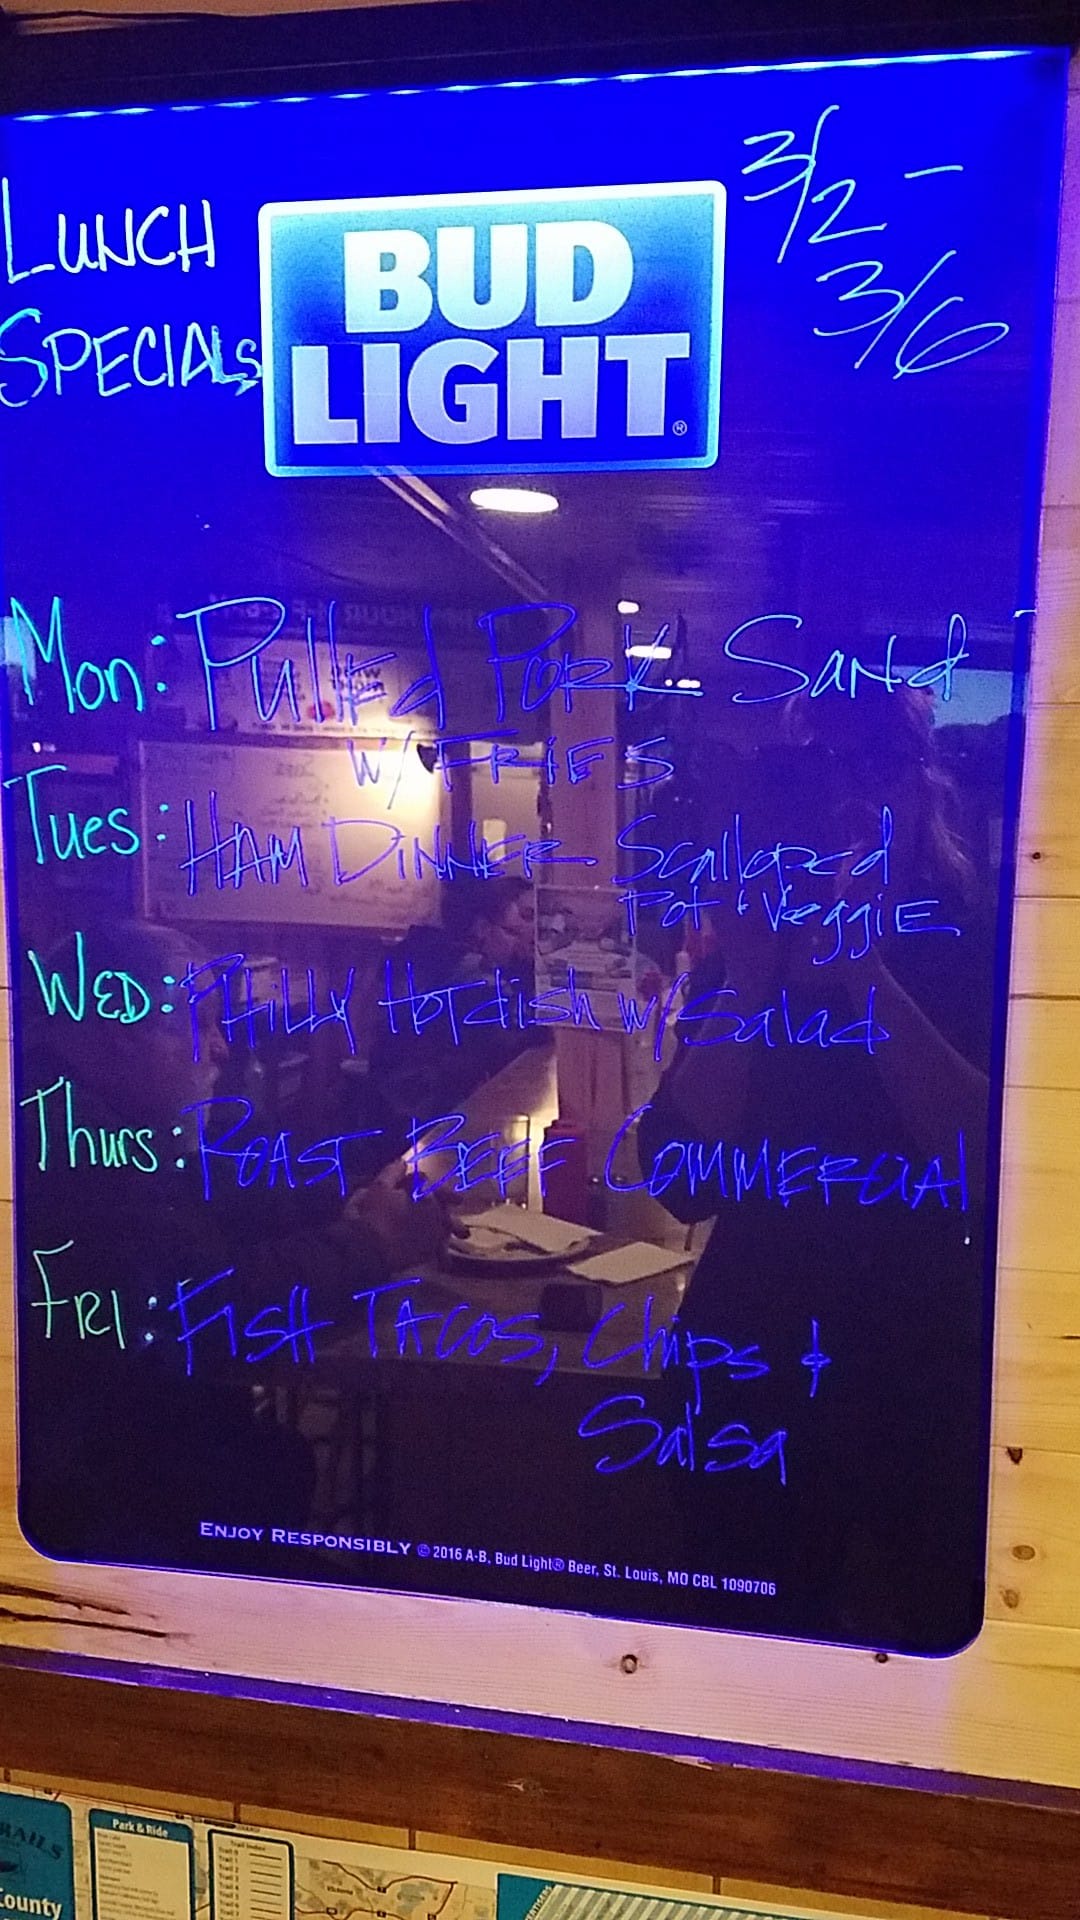 LUNCH
SPECIALS
BUD
LIGHT®
3/2 -
3/6
Mon: PullEd PORK SANd
W/ FRiES
Tues: HAM DiNNER Scalloped
Pot & VeggiE
WED: PHiLLY HotdisH w/ Salad
Thurs: ROAST BEEF COMMERCIAl
FRI: FISH TACOS, Chips &
Salsa
ENJOY RESPONSIBLY © 2016 A-B, Bud Light® Beer, St. Louis, MO CBL 1090706
Park & Ride
Trail Index
County